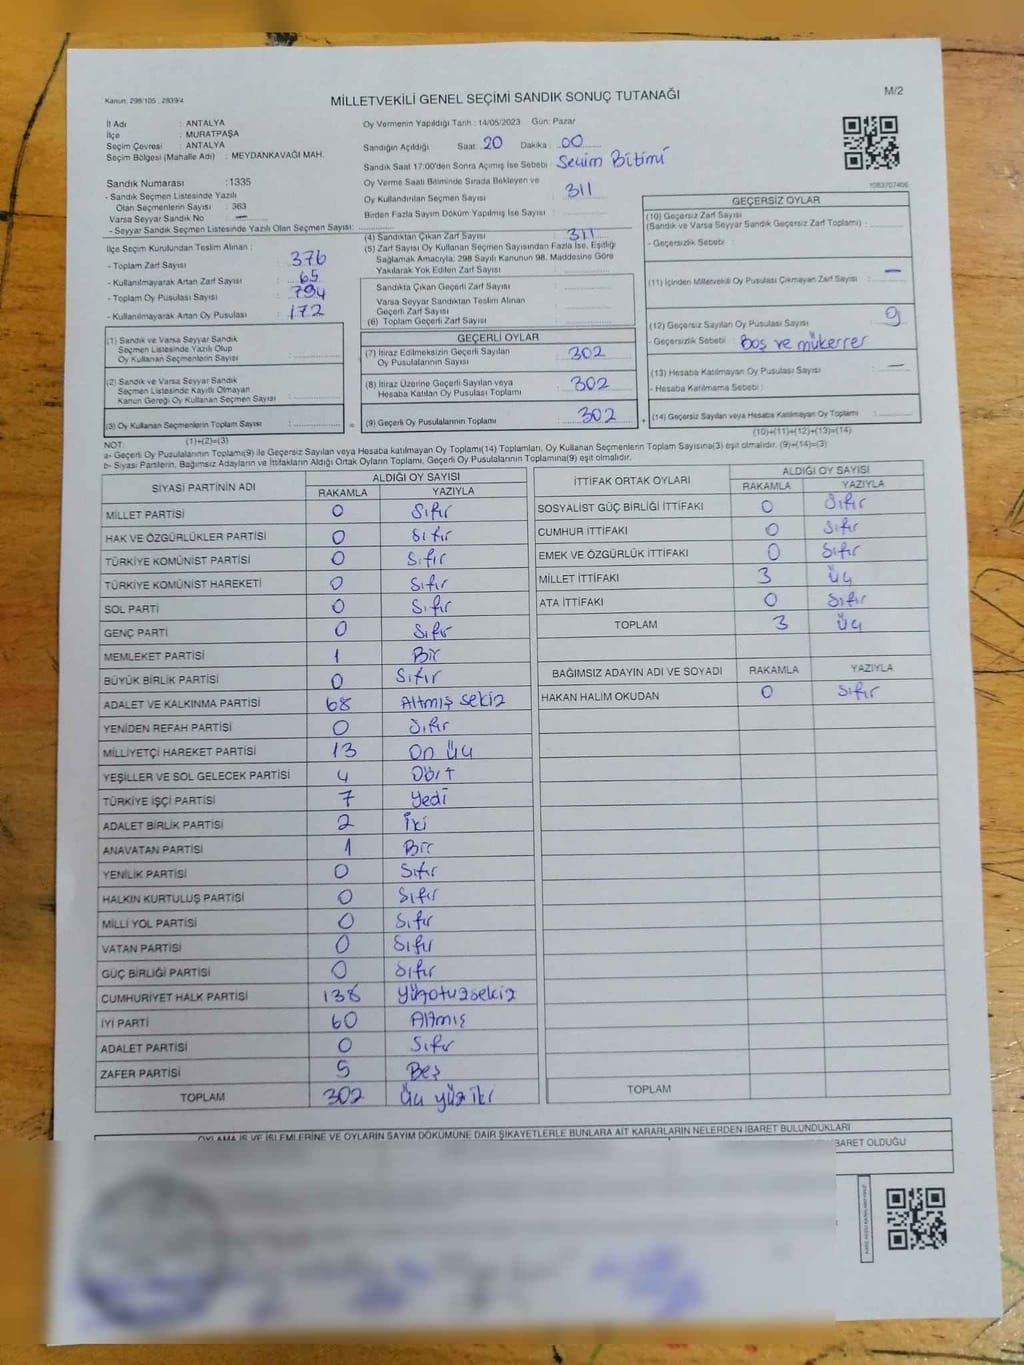 Kanun: 298/105 , 2839/4
MİLLETVEKİLİ GENEL SEÇİMİ SANDIK SONUÇ TUTANAĞI
M/2
İl Adı : ANTALYA
İlçe : MURATPAŞA
Seçim Çevresi : ANTALYA
Seçim Bölgesi (Mahalle Adı) : MEYDANKAVAĞI MAH.
Sandık Numarası :1335
- Sandık Seçmen Listesinde Yazılı
Olan Seçmenlerin Sayısı : 363
Varsa Seyyar Sandık No : —
- Seyyar Sandık Seçmen Listesinde Yazılı Olan Seçmen Sayısı:
Oy Vermenin Yapıldığı Tarih : 14/05/2023 Gün: Pazar
Sandığın Açıldığı Saat: 20 Dakika : 00
Sandık Saat 17:00'den Sonra Açılmış İse Sebebi : Seçim Bitimi
Oy Verme Saati Bitiminde Sırada Bekleyen ve
Oy Kullandırılan Seçmen Sayısı : 311
Birden Fazla Sayım Döküm Yapılmış İse Sayısı :
1083707406
İlçe Seçim Kurulundan Teslim Alınan :
- Toplam Zarf Sayısı : 376
- Kullanılmayarak Artan Zarf Sayısı : 65
- Toplam Oy Pusulası Sayısı : 794
- Kullanılmayarak Artan Oy Pusulası : 172
(1) Sandık ve Varsa Seyyar Sandık
Seçmen Listesinde Yazılı Olup
Oy Kullanan Seçmenlerin Sayısı :
(2) Sandık ve Varsa Seyyar Sandık
Seçmen Listesinde Kayıtlı Olmayan
Kanun Gereği Oy Kullanan Seçmen Sayısı :
(3) Oy Kullanan Seçmenlerin Toplam Sayısı :
(1)+(2)=(3)
(4) Sandıktan Çıkan Zarf Sayısı : 311
(5) Zarf Sayısı Oy Kullanan Seçmen Sayısından Fazla İse, Eşitliği
Sağlamak Amacıyla; 298 Sayılı Kanunun 98. Maddesine Göre
Yakılarak Yok Edilen Zarf Sayısı :
Sandıkta Çıkan Geçerli Zarf Sayısı :
Varsa Seyyar Sandıktan Teslim Alınan
Geçerli Zarf Sayısı :
(6) Toplam Geçerli Zarf Sayısı :
GEÇERLİ OYLAR
(7) İtiraz Edilmeksizin Geçerli Sayılan
Oy Pusulalarının Sayısı : 302
(8) İtiraz Üzerine Geçerli Sayılan veya
Hesaba Katılan Oy Pusulası Toplamı : 302
= (9) Geçerli Oy Pusulalarının Toplamı : 302
GEÇERSİZ OYLAR
(10) Geçersiz Zarf Sayısı
(Sandık ve Varsa Seyyar Sandık Geçersiz Zarf Toplamı) :
- Geçersizlik Sebebi :
(11) İçinden Milletvekili Oy Pusulası Çıkmayan Zarf Sayısı : —
(12) Geçersiz Sayılan Oy Pusulası Sayısı : 9
- Geçersizlik Sebebi : Boş ve mükerrer
(13) Hesaba Katılmayan Oy Pusulası Sayısı : —
- Hesaba Katılmama Sebebi :
+ (14) Geçersiz Sayılan veya Hesaba Katılmayan Oy Toplamı :
(10)+(11)+(12)+(13)=(14)
NOT:
a- Geçerli Oy Pusulalarının Toplamı(9) ile Geçersiz Sayılan veya Hesaba katılmayan Oy Toplamı(14) Toplamları, Oy Kullanan Seçmenlerin Toplam Sayısına(3) eşit olmalıdır. (9)+(14)=(3)
b- Siyasi Partilerin, Bağımsız Adayların ve İttifakların Aldığı Ortak Oyların Toplamı, Geçerli Oy Pusulalarının Toplamına(9) eşit olmalıdır.
SİYASİ PARTİNİN ADI ALDIĞI OY SAYISI
RAKAMLA YAZIYLA
MİLLET PARTİSİ 0 Sıfır
HAK VE ÖZGÜRLÜKLER PARTİSİ 0 Sıfır
TÜRKİYE KOMÜNİST PARTİSİ 0 Sıfır
TÜRKİYE KOMÜNİST HAREKETİ 0 Sıfır
SOL PARTİ 0 Sıfır
GENÇ PARTİ 0 Sıfır
MEMLEKET PARTİSİ 1 Bir
BÜYÜK BİRLİK PARTİSİ 0 Sıfır
ADALET VE KALKINMA PARTİSİ 68 Altmış sekiz
YENİDEN REFAH PARTİSİ 0 Sıfır
MİLLİYETÇİ HAREKET PARTİSİ 13 On üç
YEŞİLLER VE SOL GELECEK PARTİSİ 4 Dört
TÜRKİYE İŞÇİ PARTİSİ 7 Yedi
ADALET BİRLİK PARTİSİ 2 İki
ANAVATAN PARTİSİ 1 Bir
YENİLİK PARTİSİ 0 Sıfır
HALKIN KURTULUŞ PARTİSİ 0 Sıfır
MİLLİ YOL PARTİSİ 0 Sıfır
VATAN PARTİSİ 0 Sıfır
GÜÇ BİRLİĞİ PARTİSİ 0 Sıfır
CUMHURİYET HALK PARTİSİ 138 Yüzotuzsekiz
İYİ PARTİ 60 Altmış
ADALET PARTİSİ 0 Sıfır
ZAFER PARTİSİ 5 Beş
TOPLAM 302 Üç yüz iki
İTTİFAK ORTAK OYLARI ALDIĞI OY SAYISI
RAKAMLA YAZIYLA
SOSYALİST GÜÇ BİRLİĞİ İTTİFAKI 0 Sıfır
CUMHUR İTTİFAKI 0 Sıfır
EMEK VE ÖZGÜRLÜK İTTİFAKI 0 Sıfır
MİLLET İTTİFAKI 3 Üç
ATA İTTİFAKI 0 Sıfır
TOPLAM 3 Üç
BAĞIMSIZ ADAYIN ADI VE SOYADI RAKAMLA YAZIYLA
HAKAN HALİM OKUDAN 0 Sıfır
TOPLAM
OYLAMA İŞ VE İŞLEMLERİNE VE OYLARIN SAYIM DÖKÜMÜNE DAİR ŞİKAYETLERLE BUNLARA AİT KARARLARIN NELERDEN İBARET BULUNDUKLARI
İBARET OLDUĞU